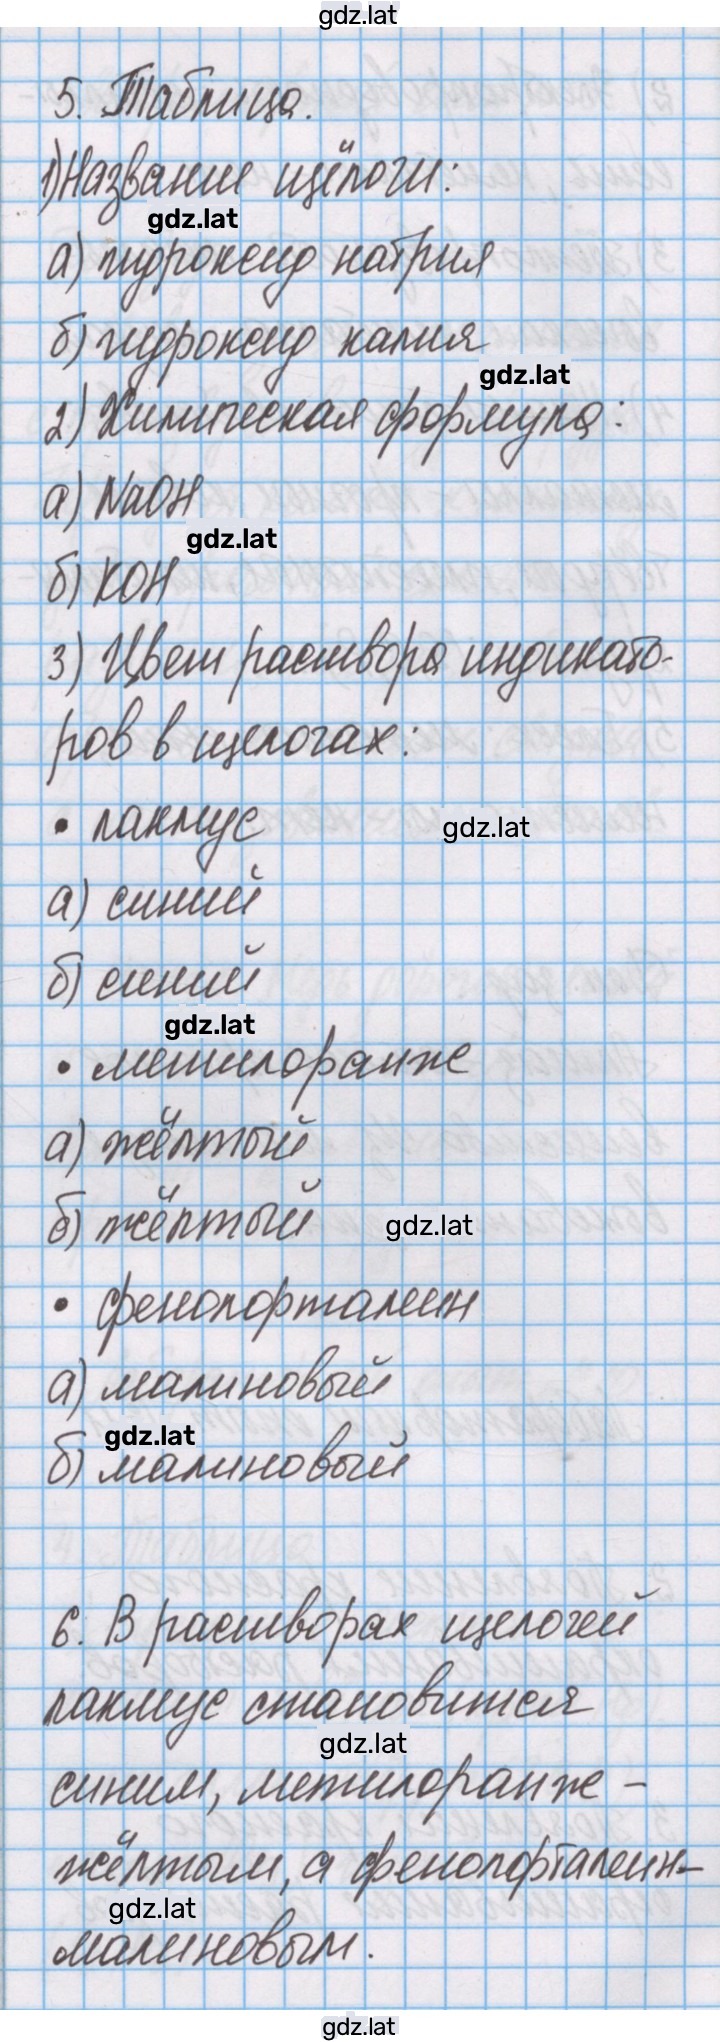 gdz.lat
5. Таблица.
1) Название щёлочи:
gdz.lat
а) гидроксид натрия
б) гидроксид калия
gdz.lat
2) Химическая формула:
а) NaOH
gdz.lat
б) KOH
3) Цвет раствора индикато-
ров в щелочах:
• лакмус
gdz.lat
а) синий
б) синий
gdz.lat
• метилоранж
а) жёлтый
б) жёлтый
gdz.lat
• фенолфталеин
а) малиновый
gdz.lat
б) малиновый
6. В растворах щелочей
лакмус становится
gdz.lat
синим, метилоранж -
жёлтым, а фенолфталеин-
gdz.lat
малиновым.
gdz.lat